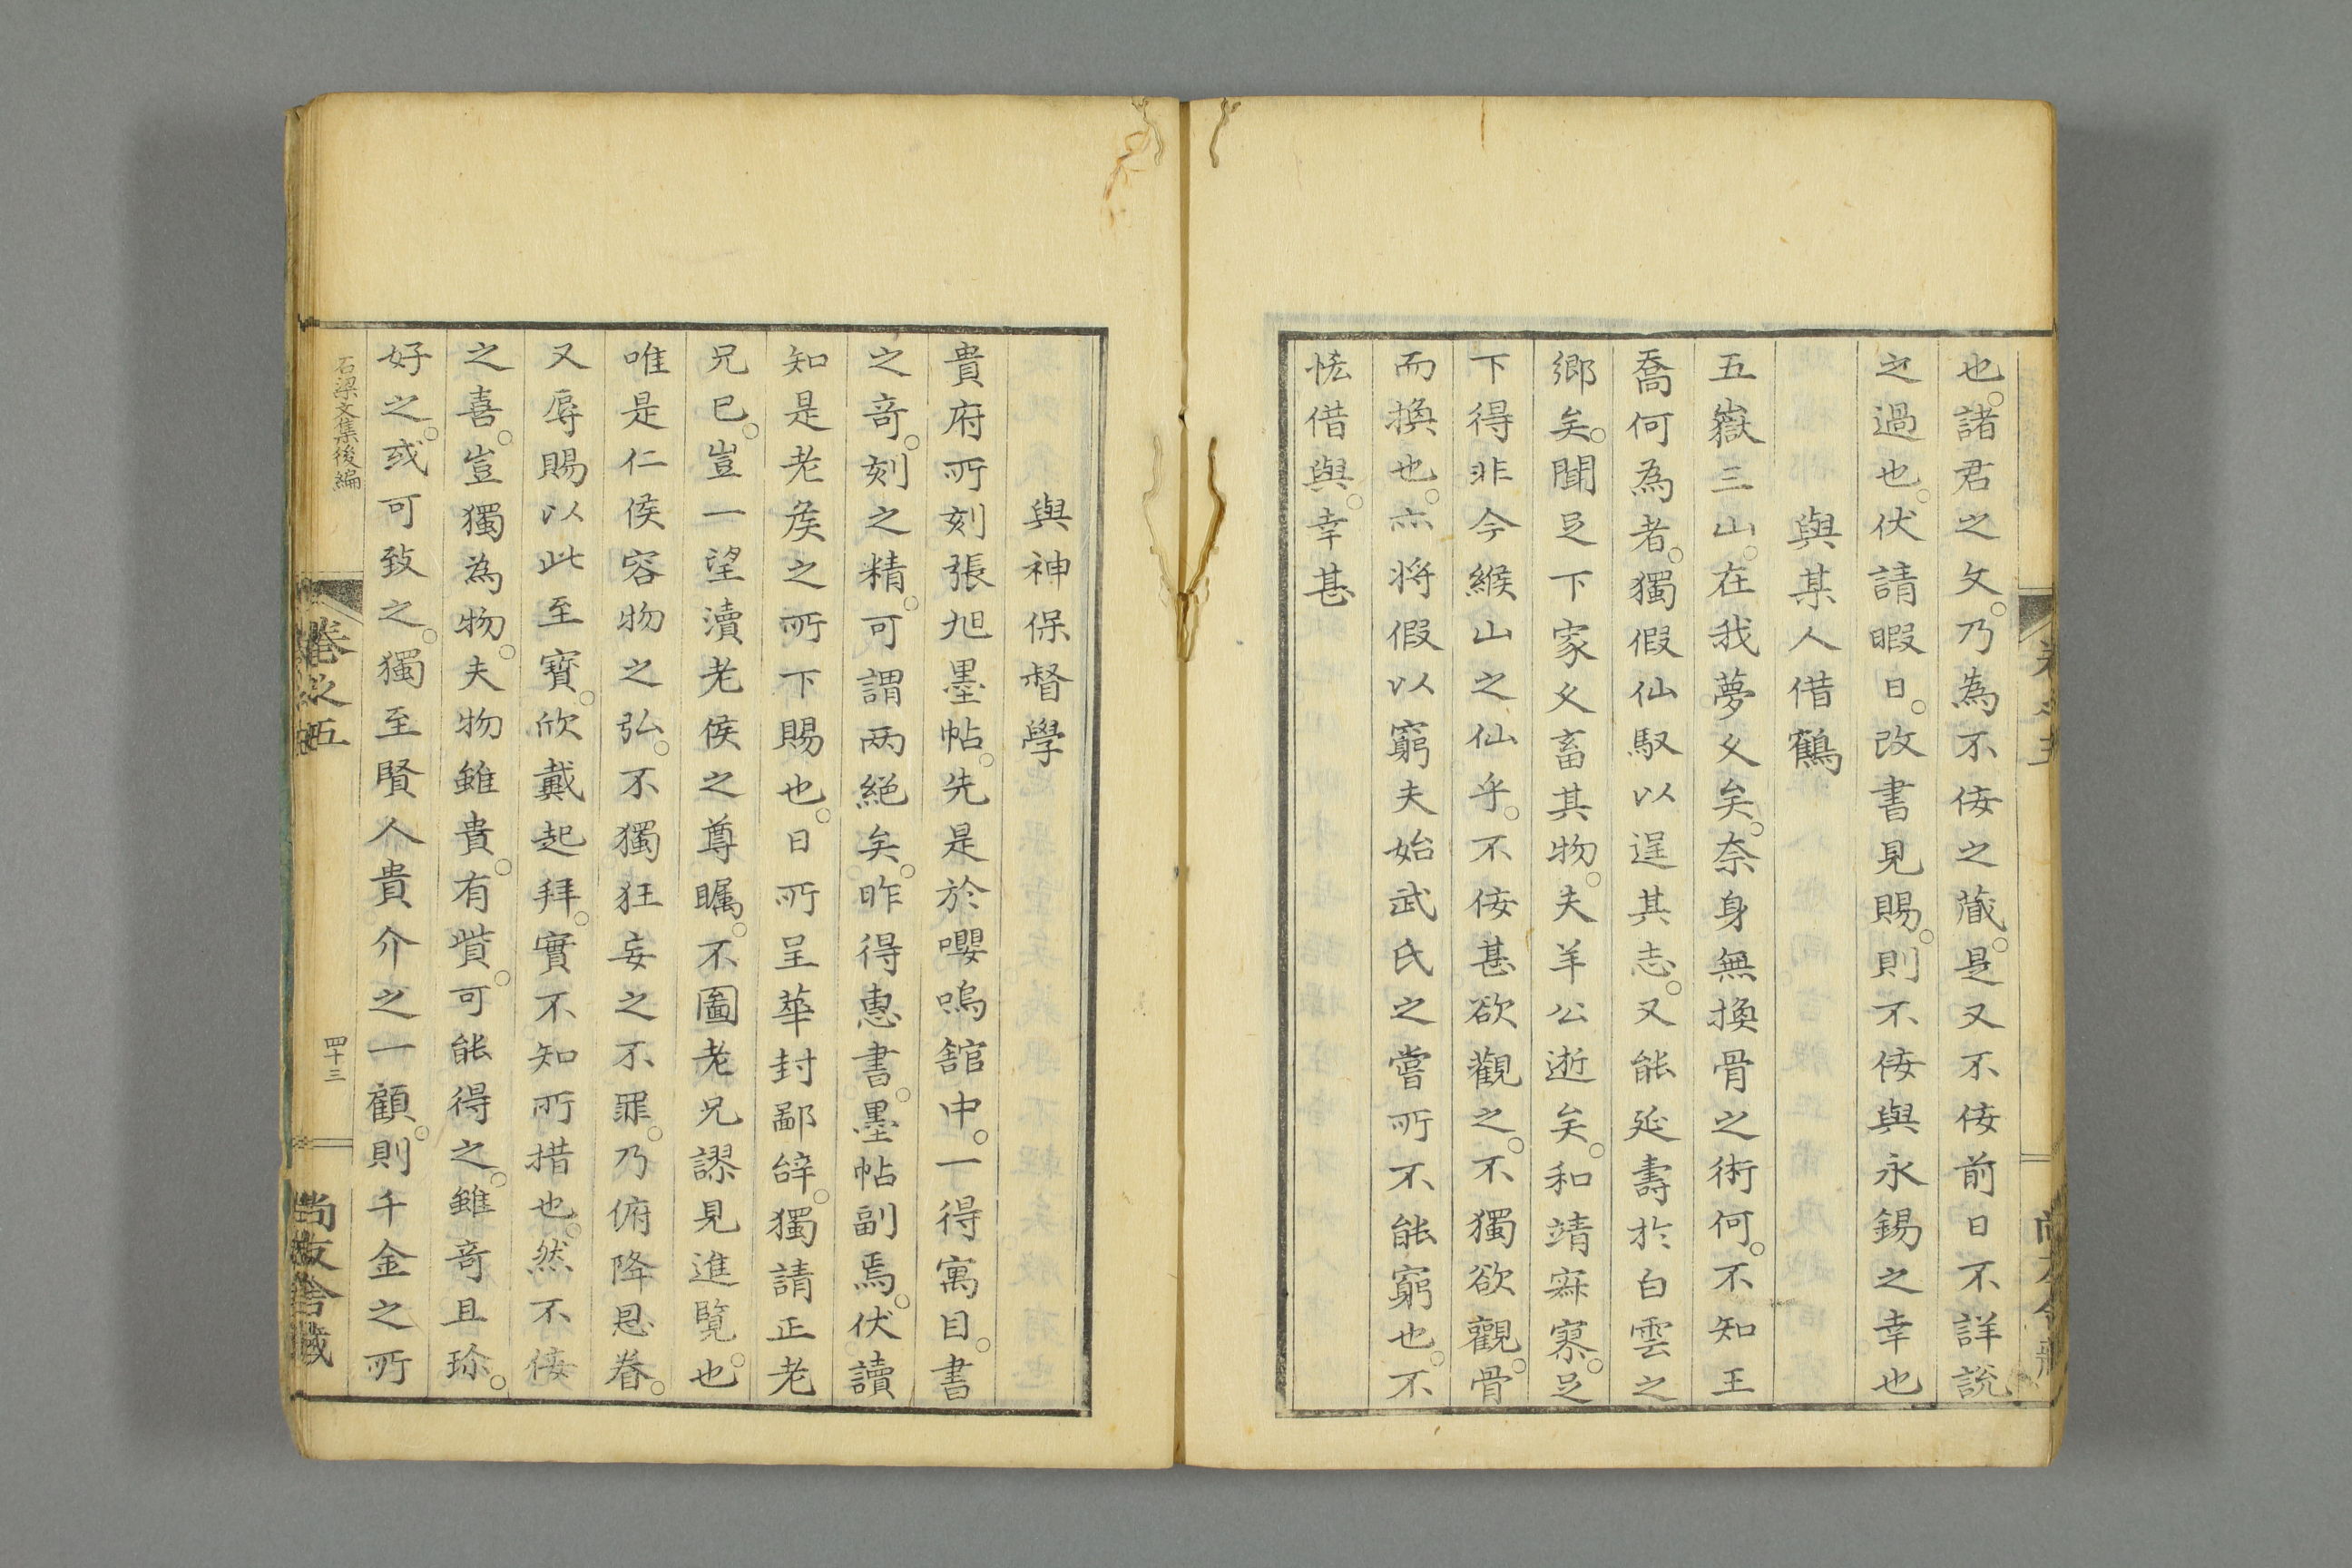 也。諸君之文。乃為不侫之蕆。是又不侫前日不詳說
之過也。伏請暇日。改書見賜。則不侫與永錫之幸也
與某人借鶴
五嶽三山。在我夢久矣。奈身無換骨之術何。不知王
喬何為者。獨假仙馭以逞其志。又能延壽於白雲之
鄉矣。聞足下家久畜其物。夫羊公逝矣。和靖寂寞。足
下得非今緱山之仙乎。不侫甚欲觀之。不獨欲觀。骨
而換也。亦將假以窮夫始武氏之嘗所不能窮也。不
恡借與。幸甚
與神保督學
貴府所刻張旭墨帖。先是於嚶鳴舘中。一得寓目。書
之竒。刻之精。可謂两絕矣。昨得惠書。墨帖副焉。伏讀
知是老矦之所下賜也。日所呈華封鄙辝。獨請正老
兄已。豈一望瀆老侯之尊矚。不圖老兄謬見進覽也。
唯是仁侯容物之弘。不獨狂妄之不罪。乃俯降恩眷。
又辱賜以此至寶。欣戴起拜。實不知所措也。然不侫
之喜。豈獨為物。夫物雖貴。有貲。可能得之。雖竒且珎。
好之。或可致之。獨至賢人貴介之一顧。則千金之所
石梁文集後編
卷之五
四十三
尚友舍藏